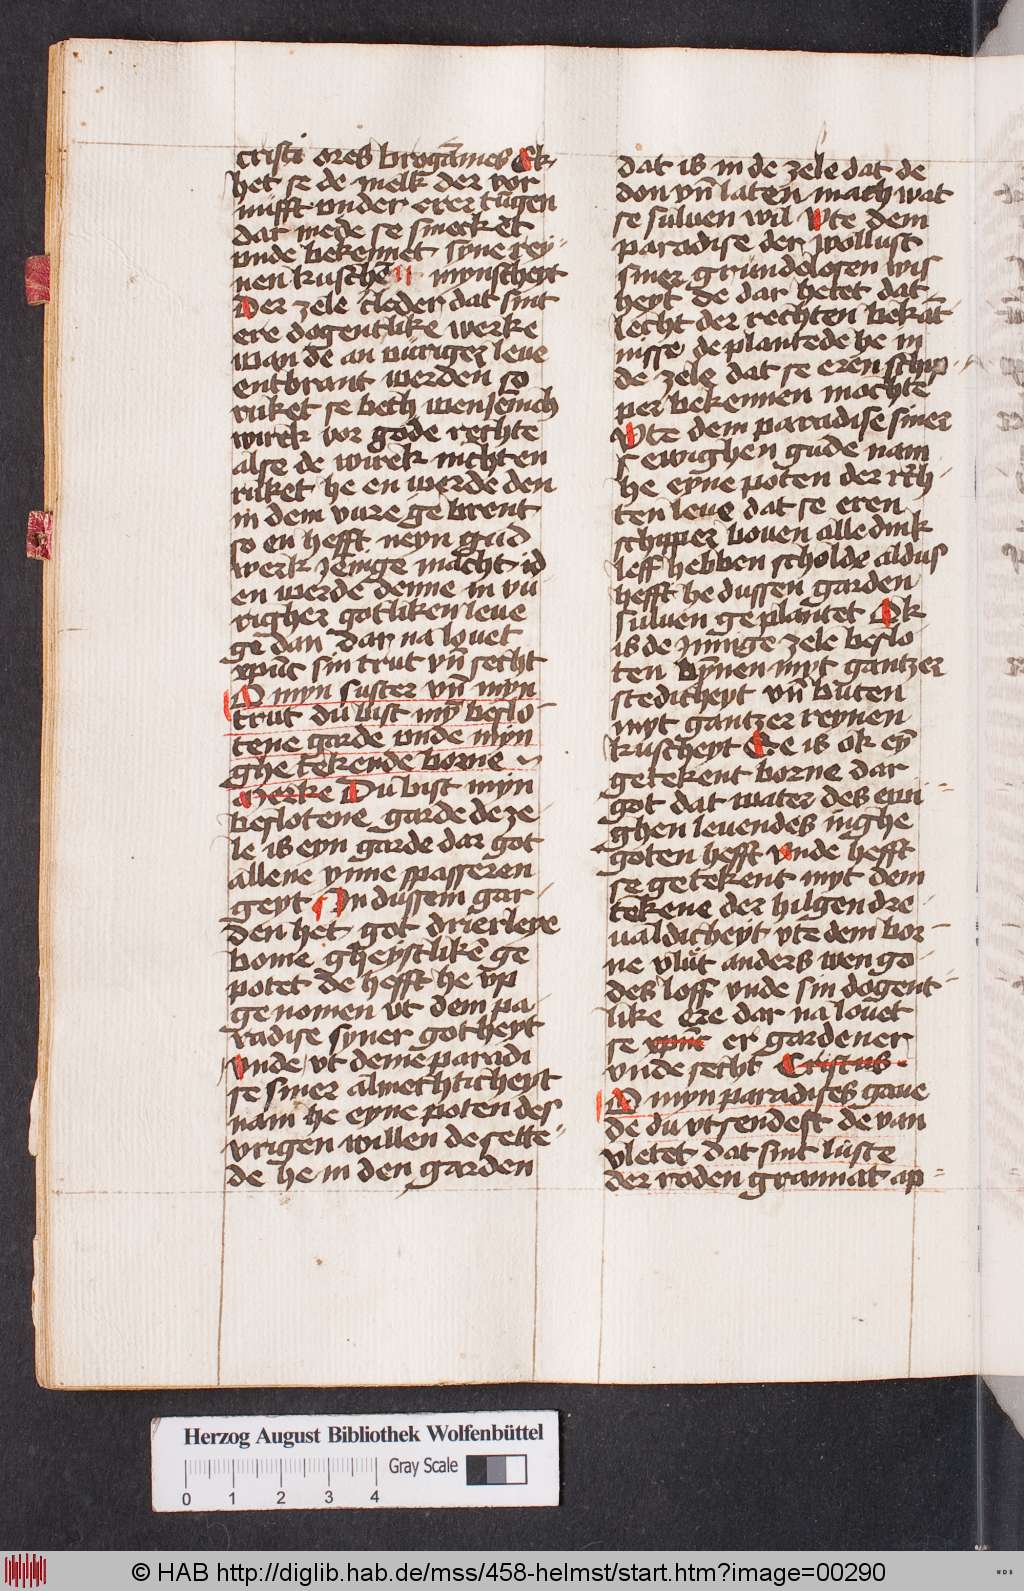 cristi ores brogāmes Ok
het se de melk der vor
nufft vnder erer tūgen
dar mede se smecket
vnde bekennet syne rey-
nen kuschen mynscheyt
Der zele cleder dat sint
ere dogentlike werke
wan de an vūriger leue
entbrant werden so
ruket se beth wen jenich
wirek vor gode rechte
alse de wirek nichten
ruket he en werde den
in dem vure gebrent
so en hefft neyn gud
werk jenige macht id
en werde denne in vu
righer gotliken leue
ge dan dar na louet
xpūc sin trut vn̄ secht
O myn suster vn̄ myn
trut du bist my̅ beslo-
tene garde vnde myn
ghe tekende borne
Merke Du bist myn
beslotene garde de ze
le is eyn garde dar got
allene ynne spasseren
geyt In dussem gar-
den het got drierleye
bome gheystlikē ge
potet de hefft he vp
genomen vt dem pa-
radise syner gotheyt
vnde vt deme paradi
se siner almechticheyt
nam he eyne poten des
vrigen willen de sette-
de he in den garden
dat is in de zele dat de
don vn̄ laten mach wat
se suluen wil Vte dem
paradise der wollust
siner grundelosen wis
heyt de dar hetet dat
lecht der rechten bekāt
nisse de plantede he in
de zele dat se eren schip-
per bekennen mochte
Vte dem paradise siner
ewighen gude nam
he eyne poten der rech-
ten leue dat se eren
schipper bouen alle dink
leff hebben scholde aldus
hefft he dussen garden
suluen geplantet Ok
is de jnnige zele beslo
ten bynen myt gantzer
stedicheyt vn̄ buten
myt gantzer reynen
kuscheyt Se is ok ey̅
getekent borne dar
got dat water des ewi-
ghen leuendes inghe
goten hefft vnde hefft
se getekent myt dem
tekene der hilgen dre-
ualdicheyt vte dem bor-
ne vlut anders wen go-
des loff vnde sin dogent-
like ere dar na louet
se xpūc er gardener
vnde secht Cristus
O myn paradises gaue
de du vtsendest de van
vletet dat sint luste
der roden grannat ap-
Herzog August Bibliothek Wolfenbüttel
Gray Scale
0 1 2 3 4
© HAB http://diglib.hab.de/mss/458-helmst/start.htm?image=00290